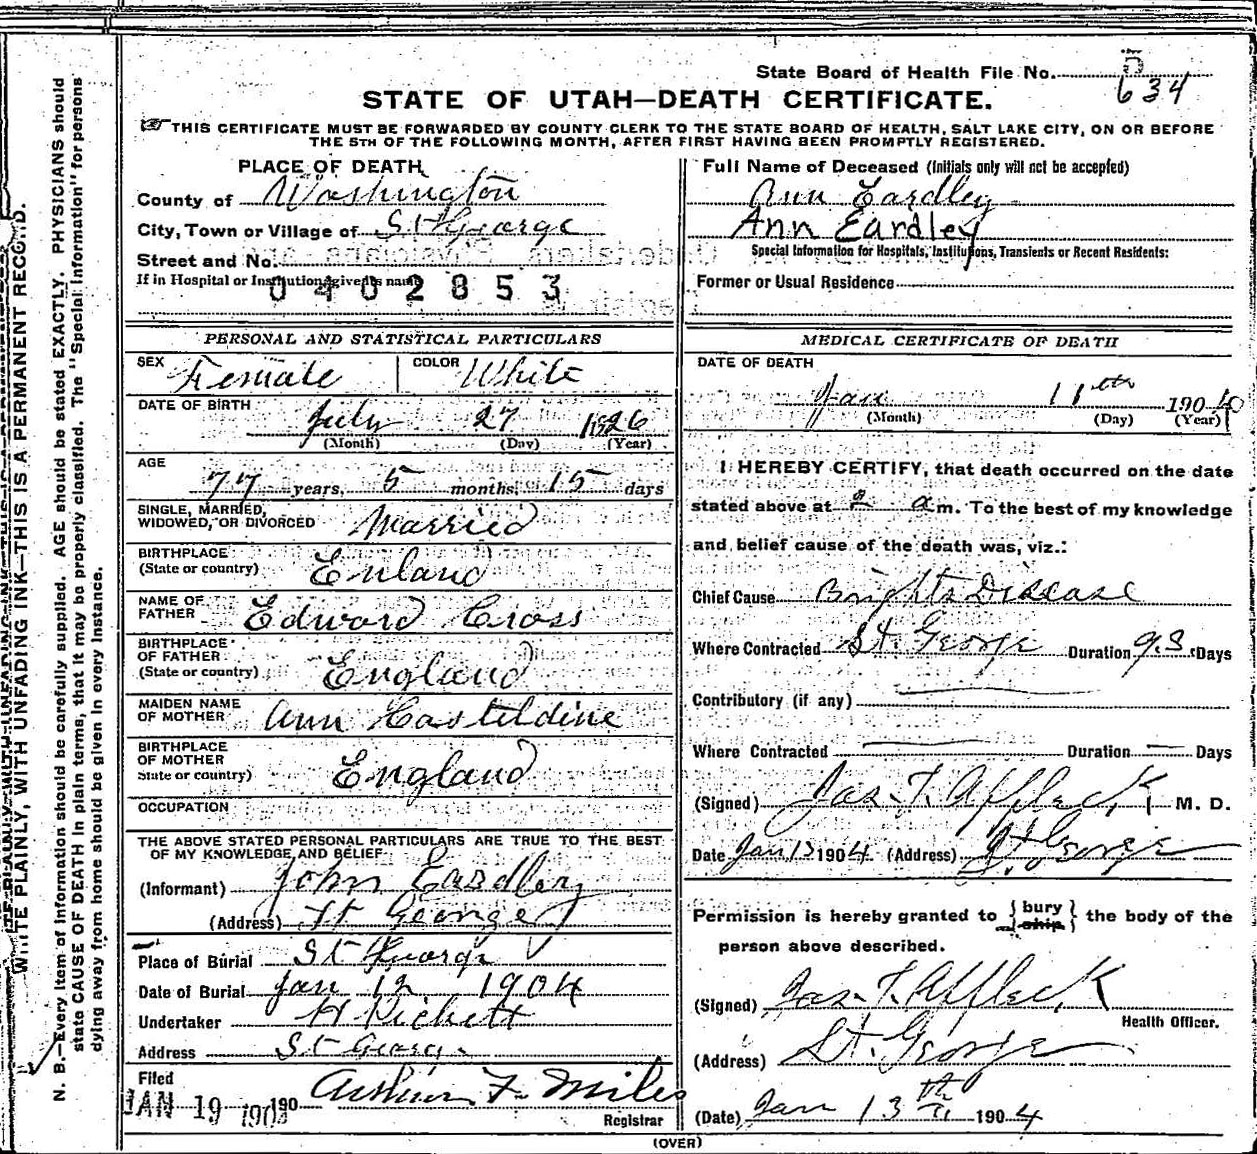 State Board of Health File No. 634
STATE OF UTAH—DEATH CERTIFICATE.
THIS CERTIFICATE MUST BE FORWARDED BY COUNTY CLERK TO THE STATE BOARD OF HEALTH, SALT LAKE CITY, ON OR BEFORE
THE 5TH OF THE FOLLOWING MONTH, AFTER FIRST HAVING BEEN PROMPTLY REGISTERED.
WRITE PLAINLY, WITH UNFADING INK—THIS IS A PERMANENT RECORD.
N. B.—Every item of information should be carefully supplied. AGE should be stated EXACTLY. PHYSICIANS should
state CAUSE OF DEATH in plain terms, that it may be properly classified. The "Special Information" for persons
dying away from home should be given in every instance.
PLACE OF DEATH
County of Washington
City, Town or Village of St George
Street and No.
If in Hospital or Institution, give its name
0402853
PERSONAL AND STATISTICAL PARTICULARS
SEX Female COLOR White
DATE OF BIRTH
July 27 1826
(Month) (Day) (Year)
AGE
77 years, 5 months, 15 days
SINGLE, MARRIED,
WIDOWED, OR DIVORCED Married
BIRTHPLACE
(State or country) Enland
NAME OF
FATHER Edward Cross
BIRTHPLACE
OF FATHER
(State or country) England
MAIDEN NAME
OF MOTHER Ann Casteldine
BIRTHPLACE
OF MOTHER
State or country) England
OCCUPATION
THE ABOVE STATED PERSONAL PARTICULARS ARE TRUE TO THE BEST
OF MY KNOWLEDGE AND BELIEF
(Informant) John Eardley
(Address) St George
Place of Burial St George
Date of Burial Jan 12 1904
Undertaker H Pickett
Address St George
Filed
JAN 19 190 190 Arthur F. Miles
Registrar
Full Name of Deceased (Initials only will not be accepted)
Ann Eardley
Ann Eardley
Special Information for Hospitals, Institutions, Transients or Recent Residents:
Former or Usual Residence
MEDICAL CERTIFICATE OF DEATH
DATE OF DEATH
Jan 11th 190
(Month) (Day) (Year)
I HEREBY CERTIFY, that death occurred on the date
stated above at 2 a m. To the best of my knowledge
and belief cause of the death was, viz.:
Chief Cause Brights Disease
Where Contracted St. George Duration Days
Contributory (if any)
Where Contracted Duration — Days
(Signed) Jas. T. Affleck M. D.
Date Jan 13 1904 (Address) St George
Permission is hereby granted to {bury
ship} the body of the
person above described.
(Signed) Jas. T. Affleck
Health Officer.
(Address) St. George
(Date) Jan 13th 1904
(OVER)